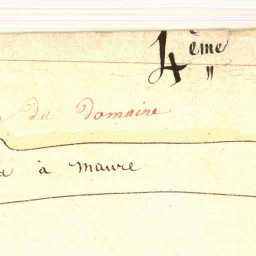 4ème
"
du Domaine
à maure